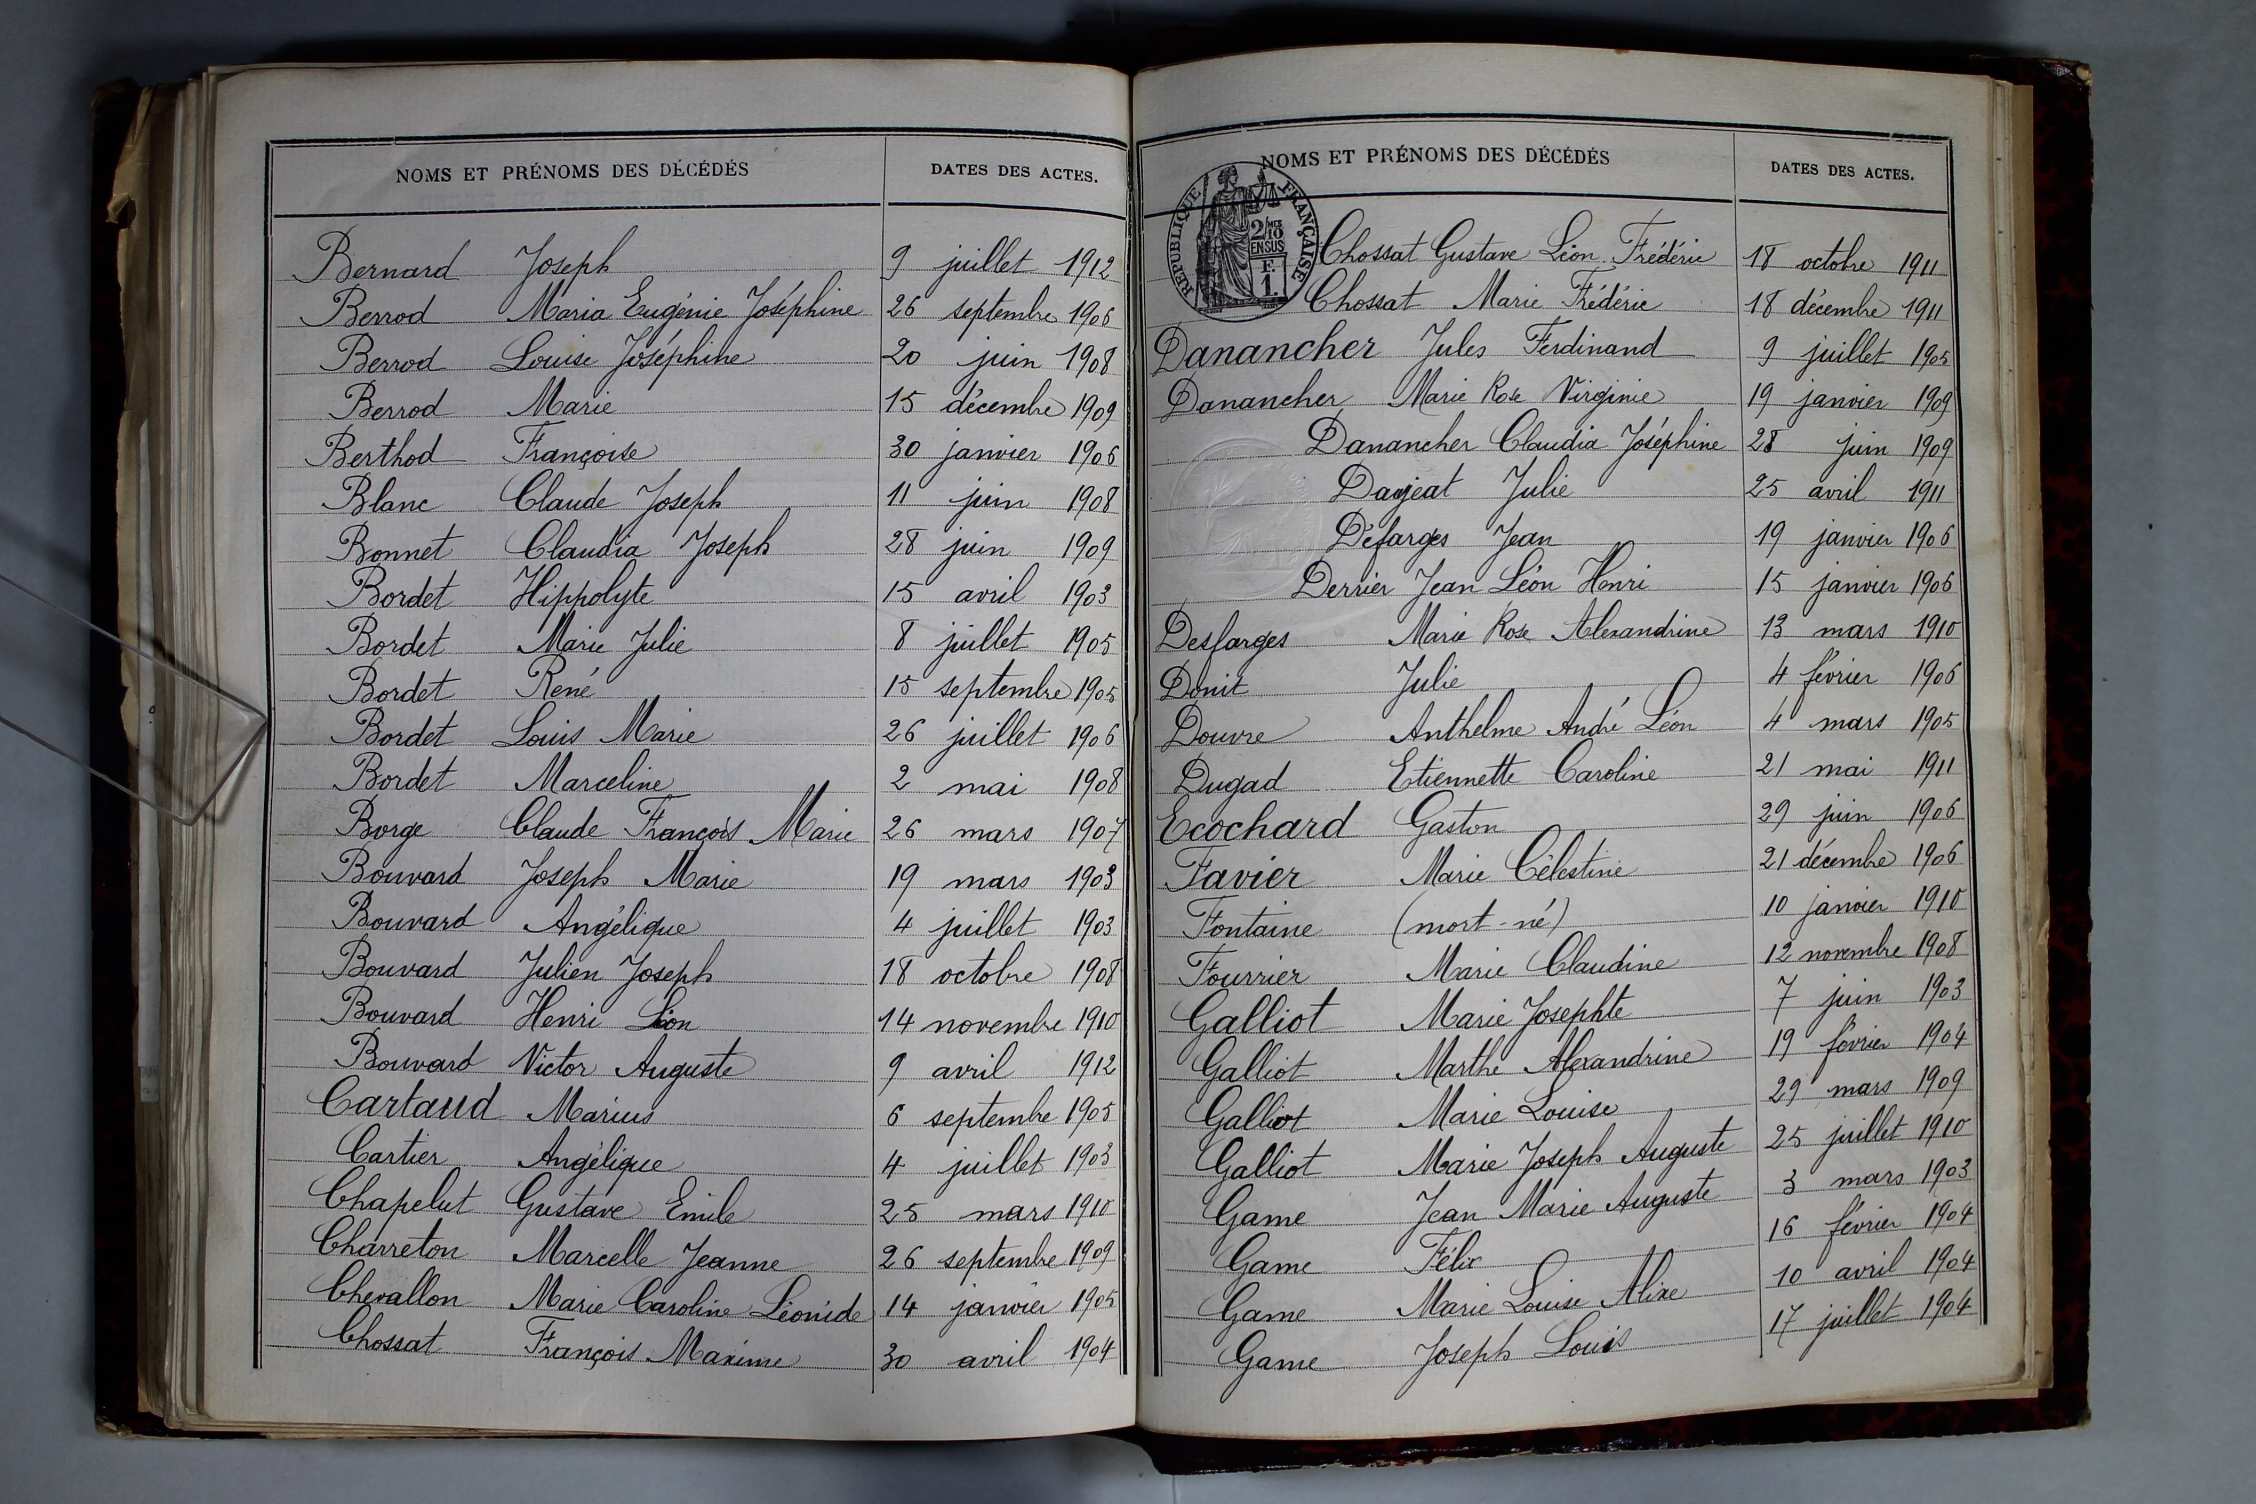 NOMS ET PRÉNOMS DES DÉCÉDÉS DATES DES ACTES.
Bernard Joseph 9 juillet 1912
Berrod Maria Eugénie Joséphine 26 septembre 1906
Berrod Louise Joséphine 20 juin 1908
Berrod Marie 15 décembre 1909
Berthod Françoise 30 janvier 1906
Blanc Claude Joseph 11 juin 1908
Bonnet Claudia Joseph 28 juin 1909
Bordet Hippolyte 15 avril 1903
Bordet Marie Julie 8 juillet 1905
Bordet René 15 septembre 1905
Bordet Louis Marie 26 juillet 1906
Bordet Marceline 2 mai 1908
Borge Claude François Marie 26 mars 1907
Bouvard Joseph Marie 19 mars 1903
Bouvard Angélique 4 juillet 1903
Bouvard Julien Joseph 18 octobre 1908
Bouvard Henri Léon 14 novembre 1910
Bouvard Victor Auguste 9 avril 1912
Cartaud Marius 6 septembre 1905
Cartier Angélique 4 juillet 1903
Chapelut Gustave Emile 25 mars 1910
Charreton Marcelle Jeanne 26 septembre 1909
Chevallon Marie Caroline Léonide 14 janvier 1905
Chossat François Maxime 30 avril 1904
NOMS ET PRÉNOMS DES DÉCÉDÉS DATES DES ACTES.
RÉPUBLIQUE FRANÇAISE
2/10
EN SUS
F.
1.
Chossat Gustave Léon Frédéric 18 octobre 1911
Chossat Marie Frédéric 18 décembre 1911
Danancher Jules Ferdinand 9 juillet 1905
Danancher Marie Rose Virginie 19 janvier 1909
Danancher Claudia Joséphine 28 juin 1909
Julie 25 avril 1911
Défarges Jean 19 janvier 1906
Derrier Jean Léon Henri 15 janvier 1906
Desfarges Marie Rose Alexandrine 13 mars 1910
Donit Julie 4 février 1906
Douvre Anthelme André Léon 4 mars 1905
Dugad Etiennette Caroline 21 mai 1911
Ecochard Gaston 29 juin 1906
Favier Marie Célestine 21 décembre 1906
Fontaine (mort-né) 10 janvier 1910
Fourrier Marie Claudine 12 novembre 1908
Galliot Marie Josephte 7 juin 1903
Galliot Marthe Alexandrine 19 février 1904
Galliot Marie Louise 29 mars 1909
Galliot Marie Joseph Auguste 25 juillet 1910
Game Jean Marie Auguste 3 mars 1903
Game Félix 16 février 1904
Game Marie Louise Alixe 10 avril 1904
Game Joseph Louis 17 juillet 1904